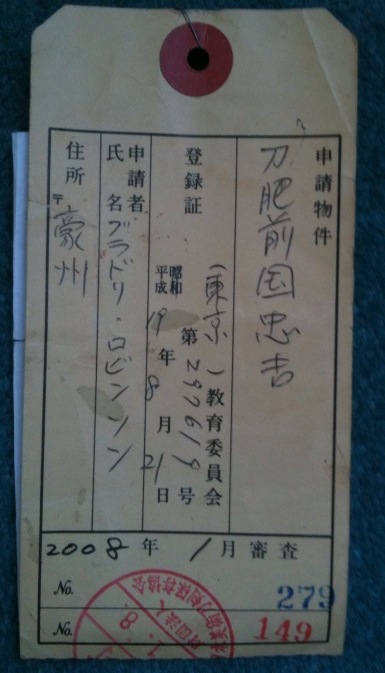 申請物件
刀 肥前国忠吉
登録証
(東京)教育委員会
第297619号
昭和
平成
19年8月21日
申請者
氏名
ブラドリ・ロビンソン
住所
〒
豪州
2008年 1月審査
No. 279
No. 149